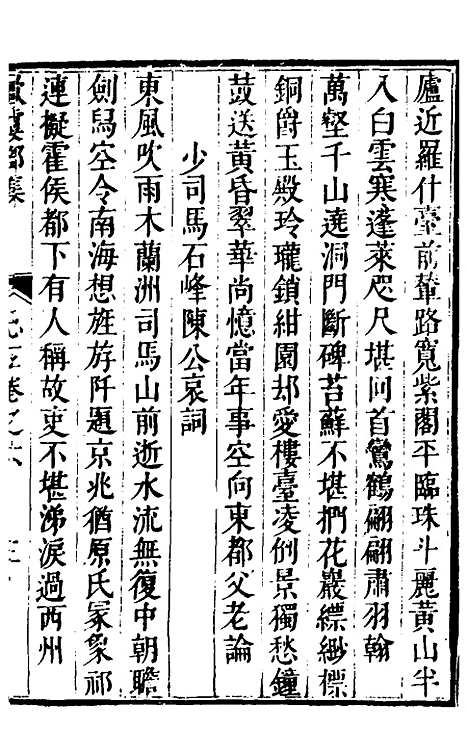 廬近羅什臺前輦路寬紫閣平臨珠斗麗黃山半
入白雲寒蓬萊咫尺堪回首鸞鶴翩翩肅羽翰
萬壑千山遶洞門斷碑苔蘚不堪捫花巖縹緲標
銅爵玉殿玲瓏鎖紺園却愛樓臺凌倒景獨愁鐘
鼓送黃昏翠華尚憶當年事空向東都父老論
少司馬石峰陳公哀詞
東風吹雨木蘭洲司馬山前逝水流無復中朝瞻
劍舄空令南海想旌斿阡題京兆猶原氏冢象祁
連擬霍侯都下有人稱故吏不堪涕淚過西州
集 卷之六